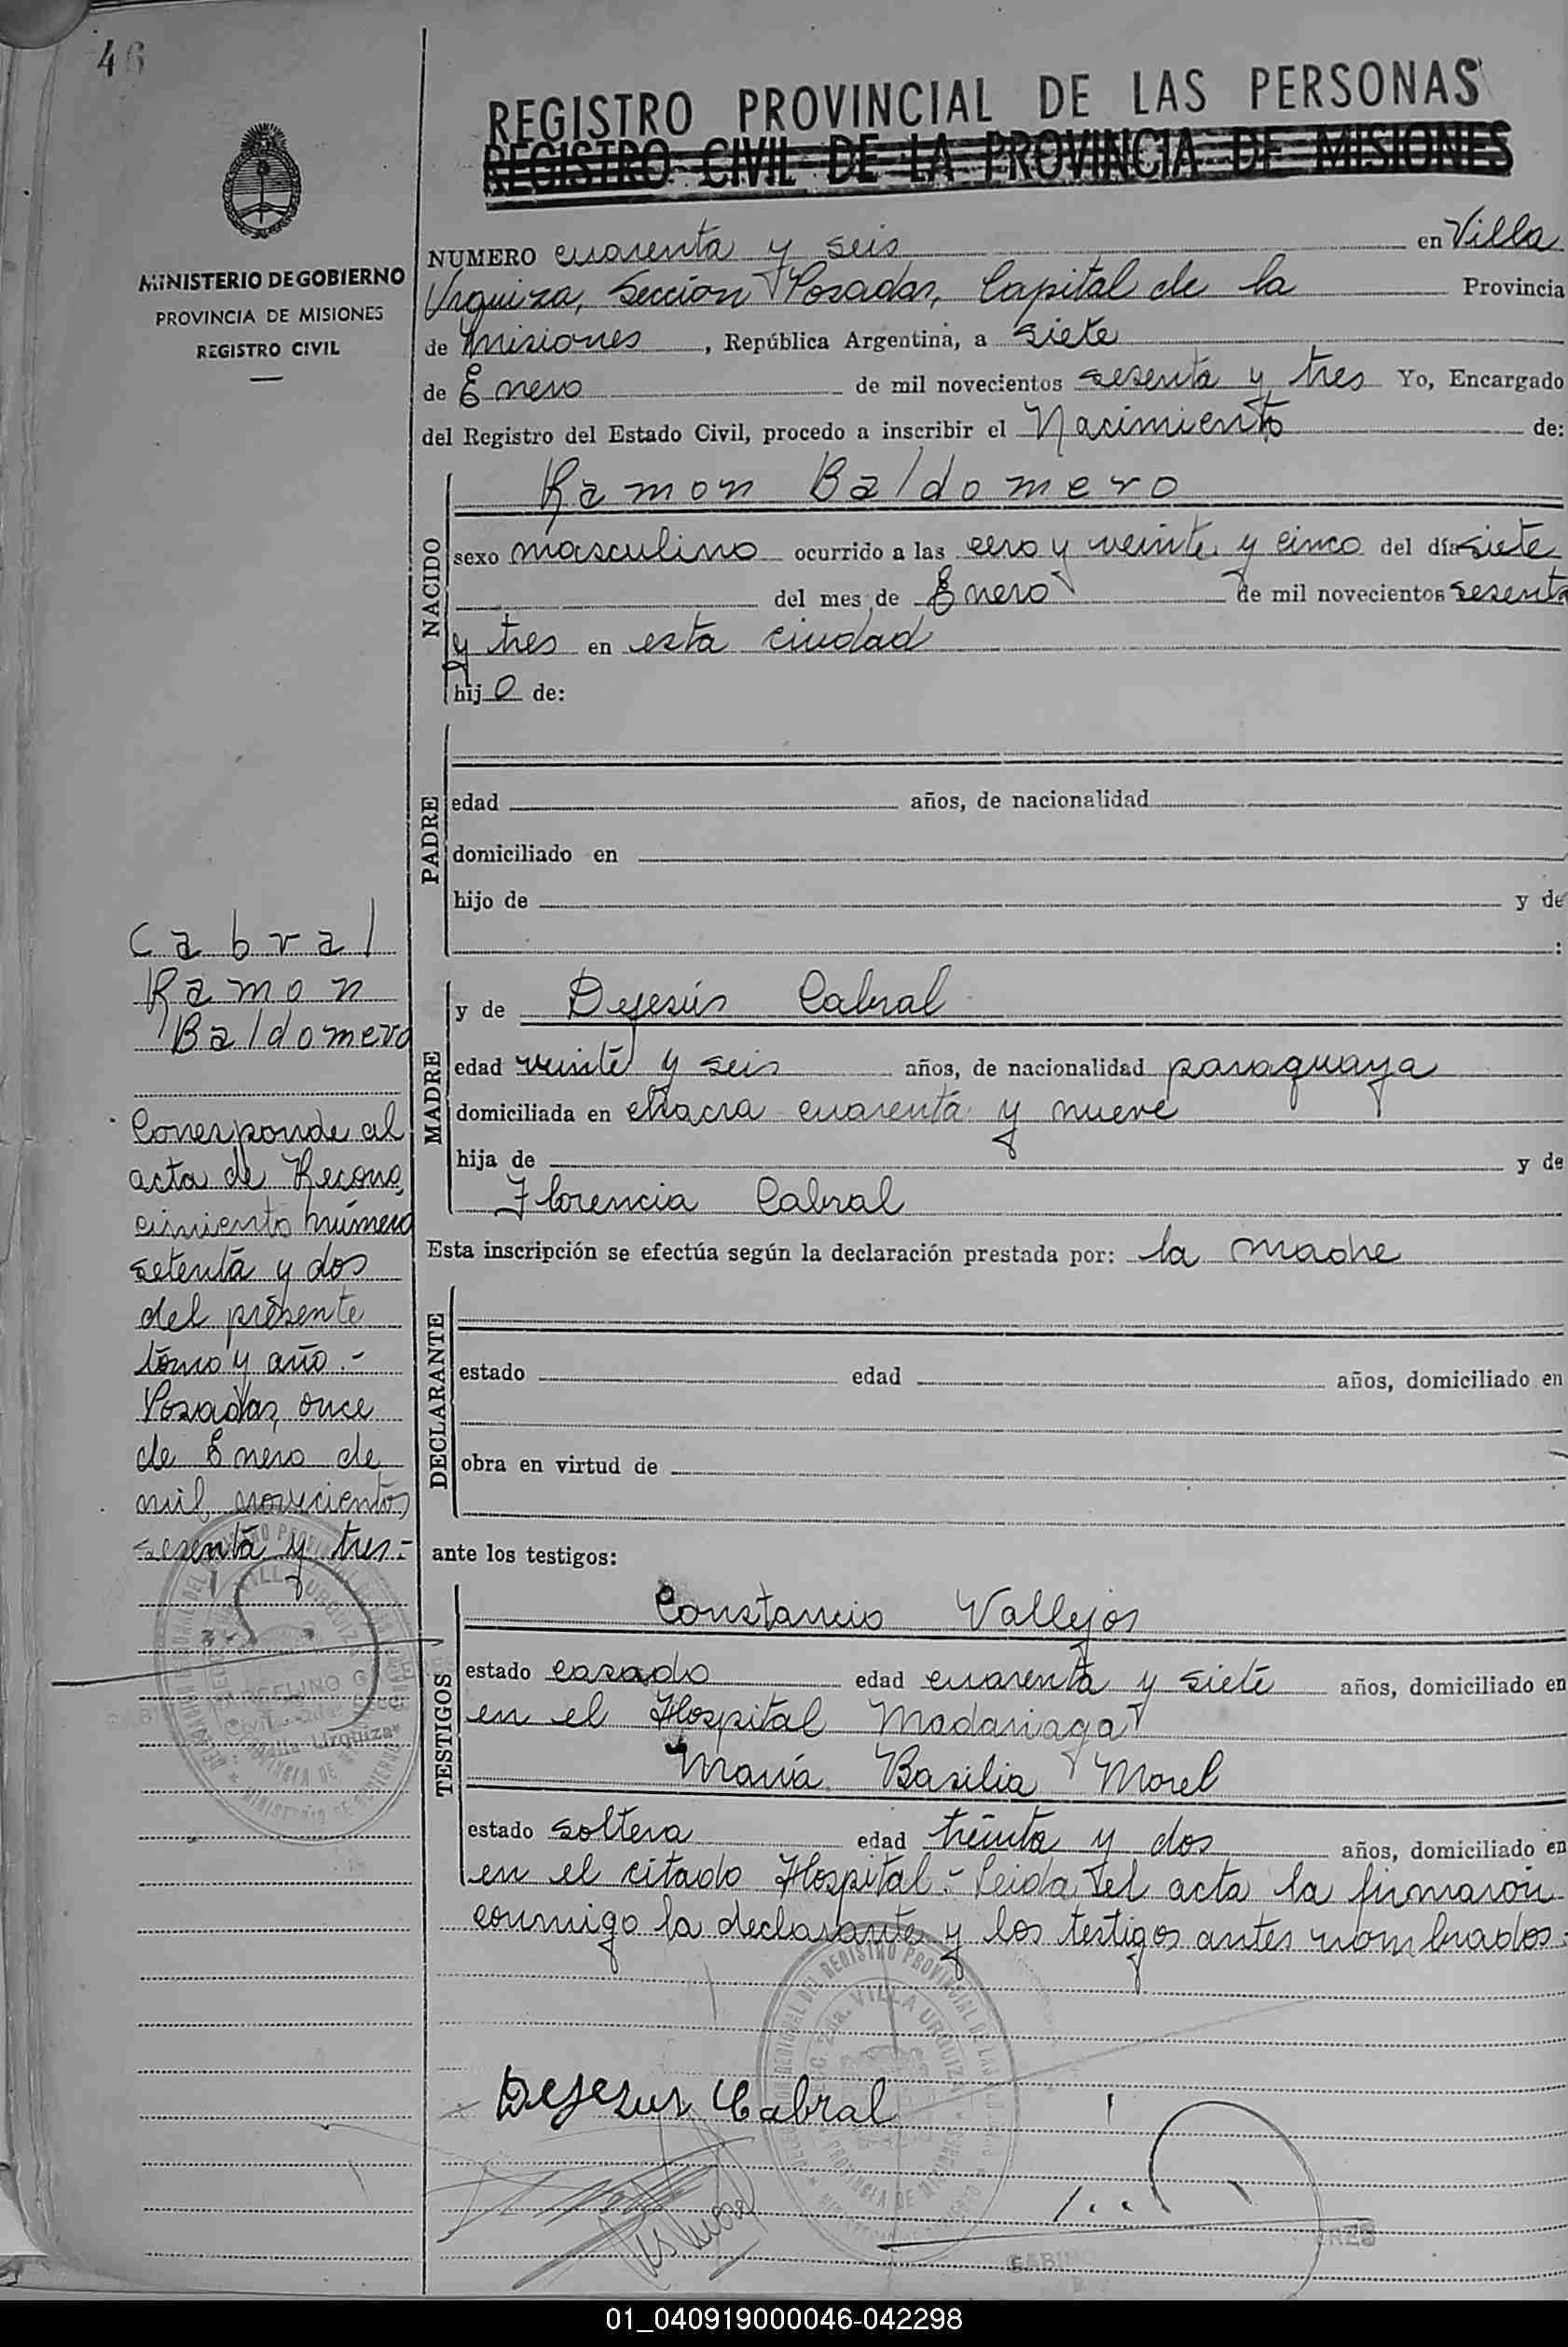 46
REGISTRO PROVINCIAL DE LAS PERSONAS
REGISTRO CIVIL DE LA PROVINCIA DE MISIONES
MINISTERIO DE GOBIERNO
PROVINCIA DE MISIONES
REGISTRO CIVIL
NUMERO cuarenta y seis en Villa
Urquiza, Sección Posadas, Capital de la Provincia
de Misiones, República Argentina, a siete
de Enero de mil novecientos sesenta y tres Yo, Encargado
del Registro del Estado Civil, procedo a inscribir el Nacimiento de:
NACIDO
Ramon Baldomero
sexo masculino ocurrido a las cero y veinte y cinco del día siete
del mes de Enero de mil novecientos sesenta
y tres en esta ciudad
hijo de:
PADRE
edad años, de nacionalidad
domiciliado en
hijo de y de
:
MADRE
y de Dejesús Cabral
edad veinte y seis años, de nacionalidad paraguaya
domiciliada en chacra cuarenta y nueve
hija de y de
Florencia Cabral
Esta inscripción se efectúa según la declaración prestada por: la madre
DECLARANTE
estado edad años, domiciliado en
obra en virtud de
ante los testigos:
TESTIGOS
Constancio Vallejos
estado casado edad cuarenta y siete años, domiciliado en
en el Hospital Madariaga
María Basilia Morel
estado soltera edad treinta y dos años, domiciliado en
en el citado Hospital.- Leida el acta la firmaron
conmigo la declarante y los testigos antes nombrados.-
Cabral
Ramon
Baldomero
Corresponde al
acta de Recono
cimiento número
setenta y dos
del presente
tomo y año.-
Posadas, once
de Enero de
mil novecientos
sesenta y tres.-
Villa Urquiza
Dejesus Cabral
DEL REGISTRO PROVINCIAL DE LAS
SECC. 2da. VILLA URQUIZA
PROVINCIA DE MISIONES
01_040919000046-042298